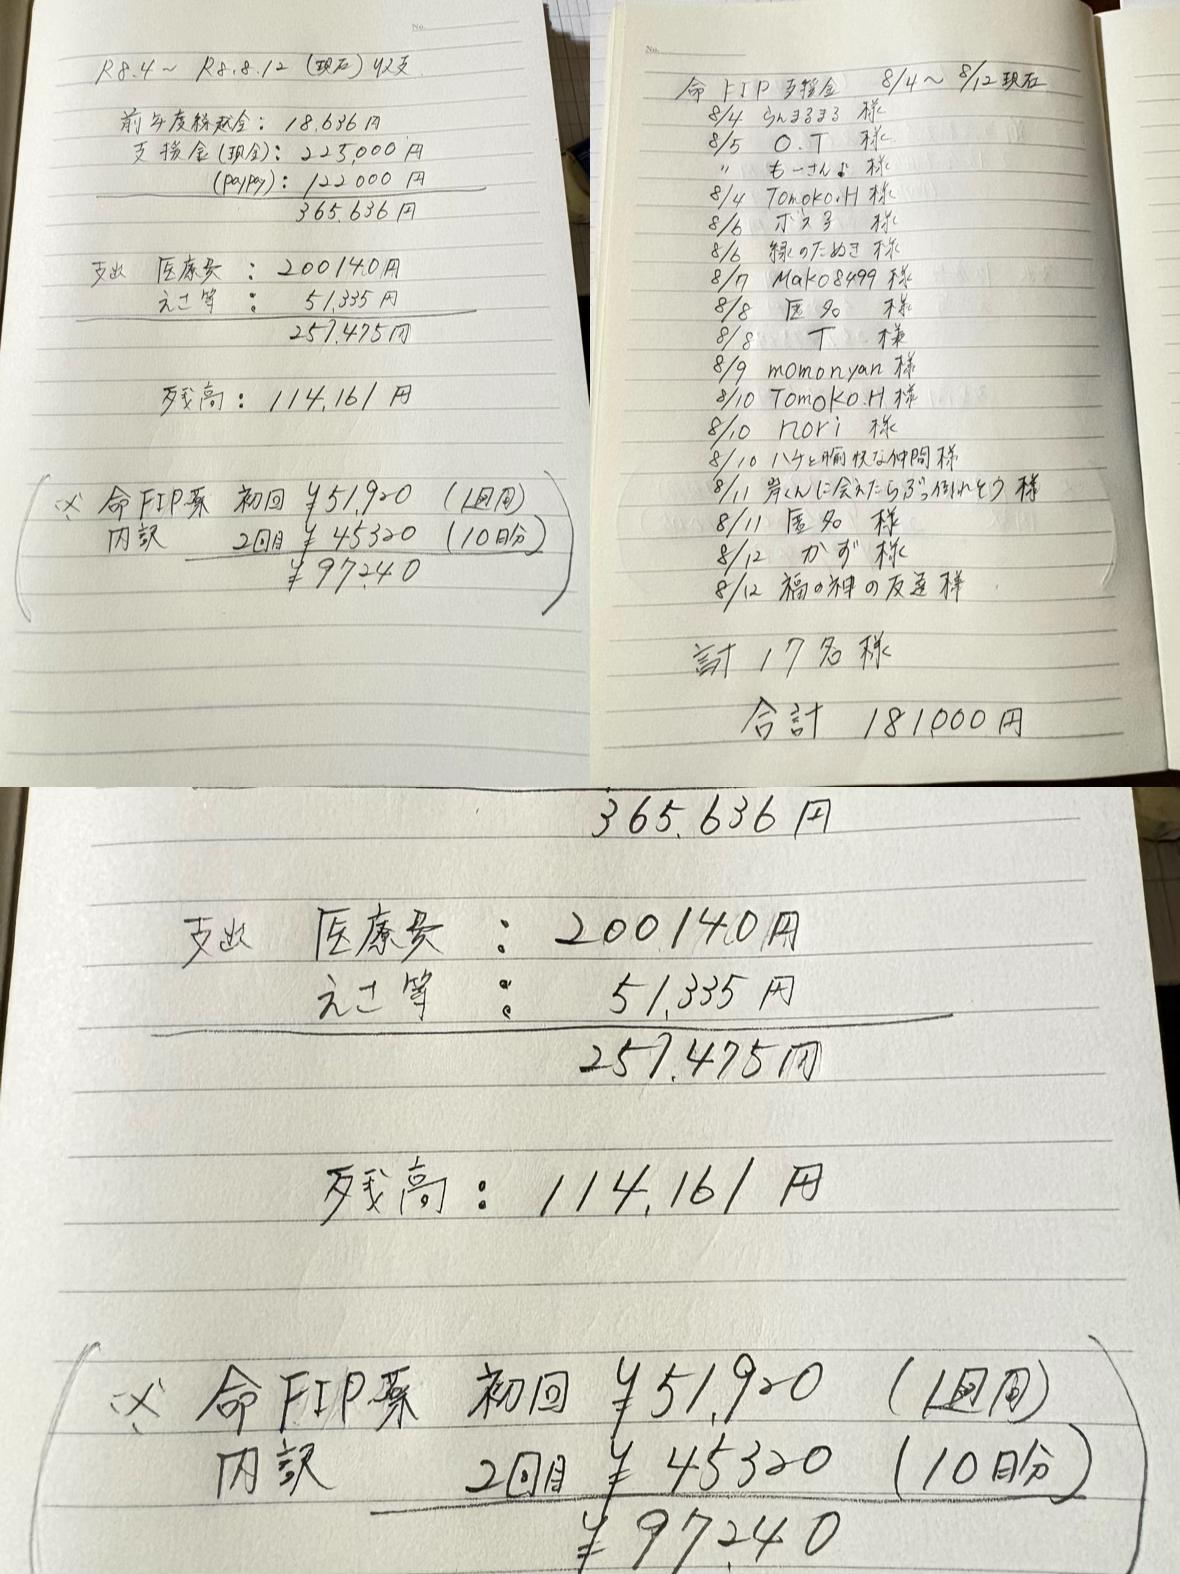 No.
R8.4〜 R8.8.12 (現在) 収支
前年度繰越金: 18.636円
支援金(現金): 225,000円
(paypay): 122000円
365.636円
支出 医療費 : 200.140円
えさ等 : 51.335円
257.475円
残高: 114.161円
※ 命FIP薬 初回 ¥51,920 (1週間)
内訳 2回目 ¥45320 (10日分)
¥97.240
No.
命 FIP 支援金 8/4〜8/12現在
8/4 らんまるまる 様
8/5 O.T 様
〃 もーさん♪ 様
8/4 Tomoko.H 様
8/6 ボス子 様
8/6 緑のたぬき 様
8/7 Mako8499 様
8/8 匿名 様
8/8 T 様
8/9 momonyan 様
8/10 Tomoko.H 様
8/10 nori 様
8/10 ハゲと愉快な仲間 様
8/11 岸くんに会えたらぶっ倒れそう 様
8/11 匿名 様
8/12 かず 様
8/12 福の神の友達 様
計 17名様
合計 181000円
365.636円
支出 医療費 : 200.140円
えさ等 : 51.335円
257.475円
残高: 114.161円
※ 命FIP薬 初回 ¥51,920 (1週間)
内訳 2回目 ¥45320 (10日分)
¥97.240